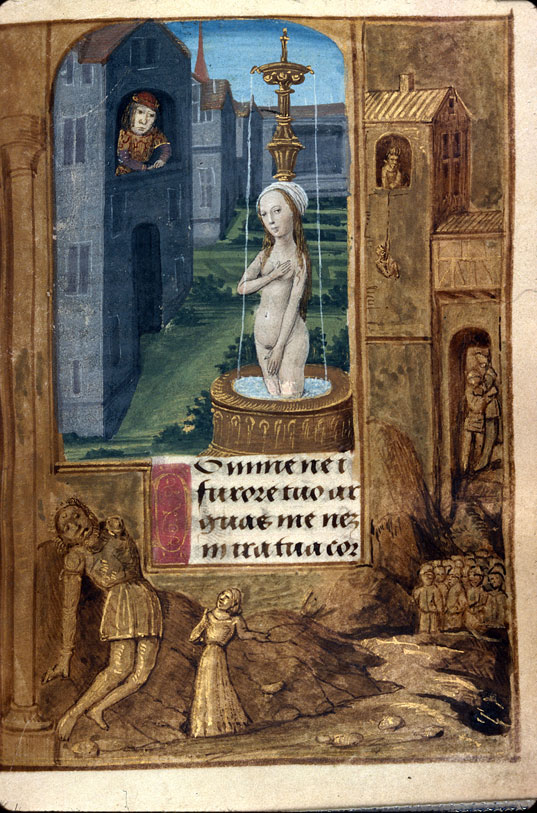 Domine ne i
furore tuo ar
guas me nez
in ira tua cor